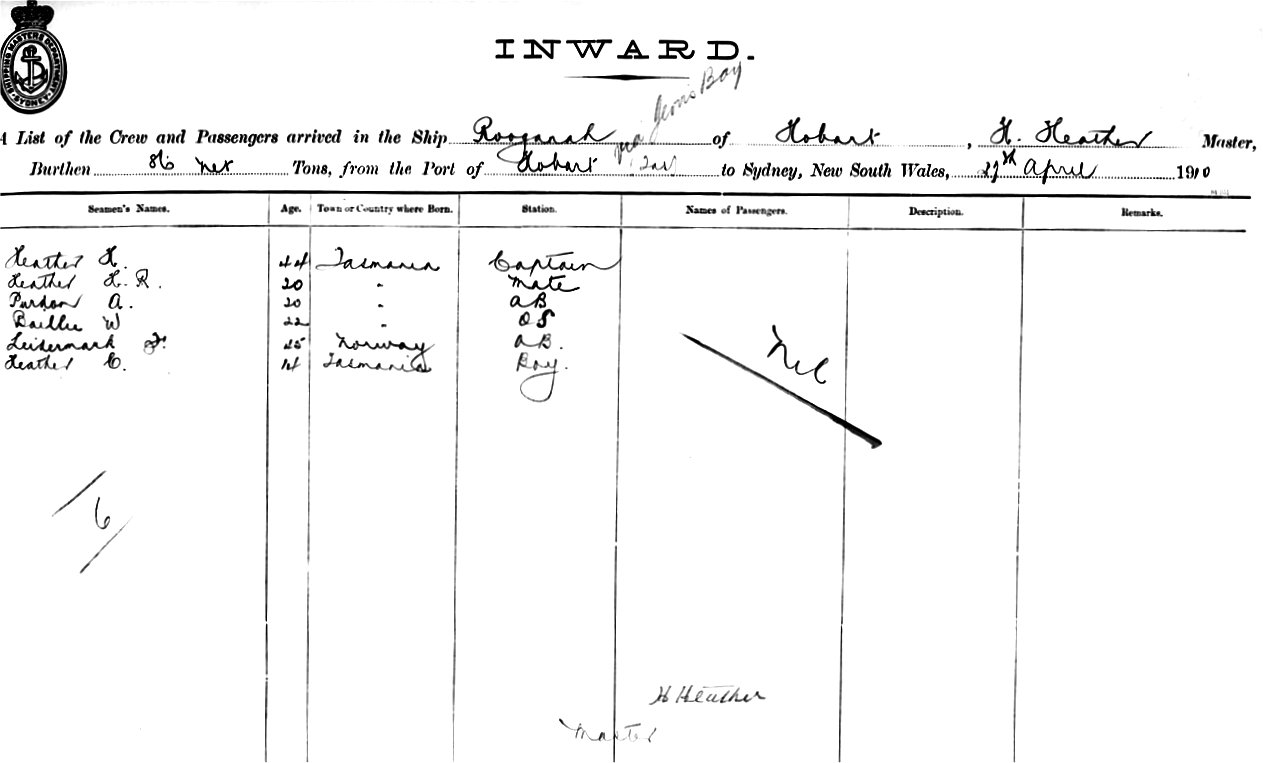 SHIPPING MASTERS DEPARTMENT SYDNEY
INWARD.
via Jervis Bay
A List of the Crew and Passengers arrived in the Ship Rooganah of Hobart, H. Heather Master,
Burthen 86 net Tons, from the Port of Hobart Tas to Sydney, New South Wales, 27th April 1910
Seamen's Names. Age. Town or Country where Born. Station. Names of Passengers. Description. Remarks.
Heather H. 44 Tasmania Captain
Heather H. R. 20 " Mate
Purdon A. 20 " AB
Baillie W 22 " OS
Leidermark F. 25 Norway AB.
Heather C. 14 Tasmania Boy.
Nil
6
H Heather
Master